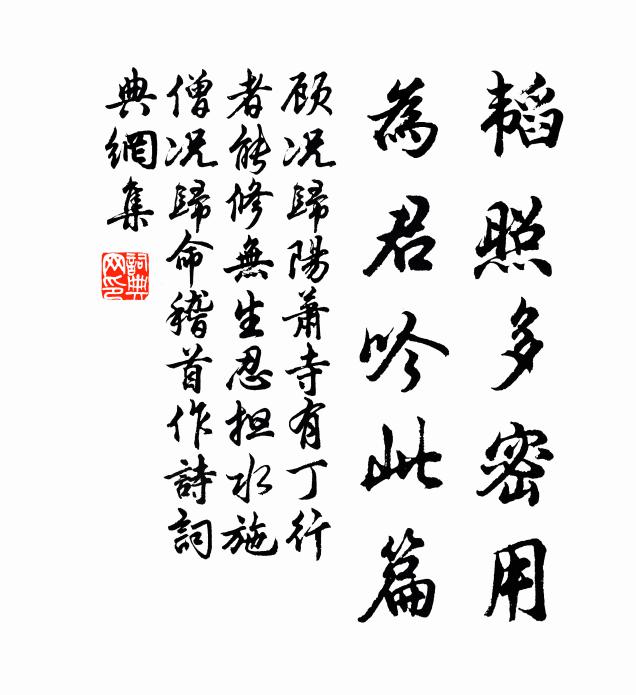 韬照多密用
為君吟此篇
顾况歸陽蕭寺有丁行
者能修無生忍担水施
僧况歸命稽首作詩詞
典網集
詞典
网印